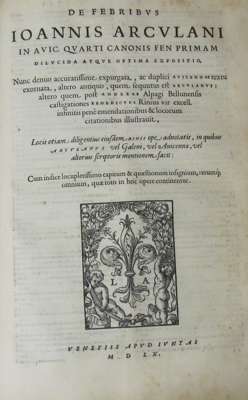 DE FEBRIBVS
IOANNIS ARCVLANI
IN AVIC. QVARTI CANONIS FEN PRIMAM
DILVCIDA ATQVE OPTIMA EXPOSITIO,
Nunc denuo accuratissime expurgata, ac duplici AVICENNAE textu
exornata, altero antiquo, quem sequutus est ARCVLANVS;
altero quem post ANDREAE Alpagi Bellunensis
castigationes BENEDICTVS Rinius vir excell.
infinitis penè emendationibus & locorum
citationibus illustrauit.
Locis etiam diligentius eiusdem ope, adnotatis, in quibus
ARCVLANVS vel Galeni, vel Auicennæ, vel
alterius scriptoris mentionem facit:
Cum indice locupletissimo capitum & quæstionum insignium, rerumq;
omnium, quæ toto in hoc opere continentur.
L A
VENETIIS APVD IVNTAS
M D LX.